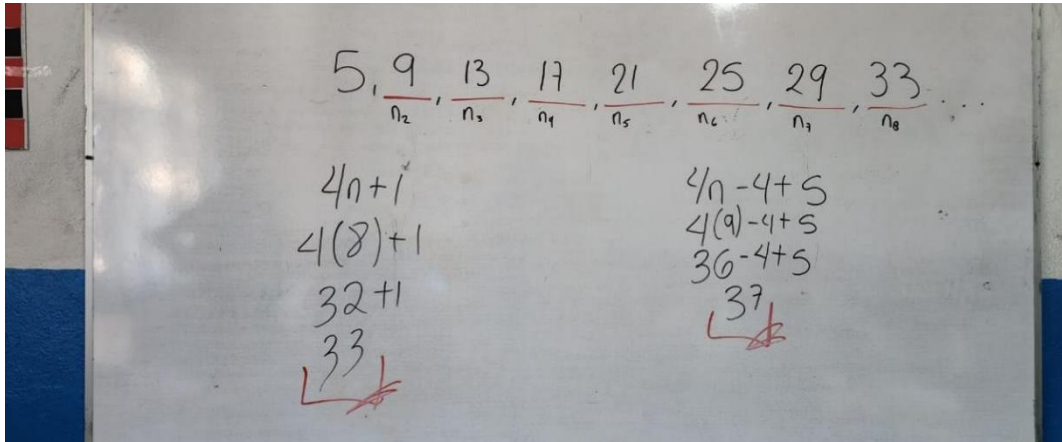 5, 9, 13, 17, 21, 25, 29, 33 ...
n₂ n₃ n₄ n₅ n₆ n₇ n₈
4n+1
4(8)+1
32+1
33
4n-4+5
4(9)-4+5
36-4+5
37